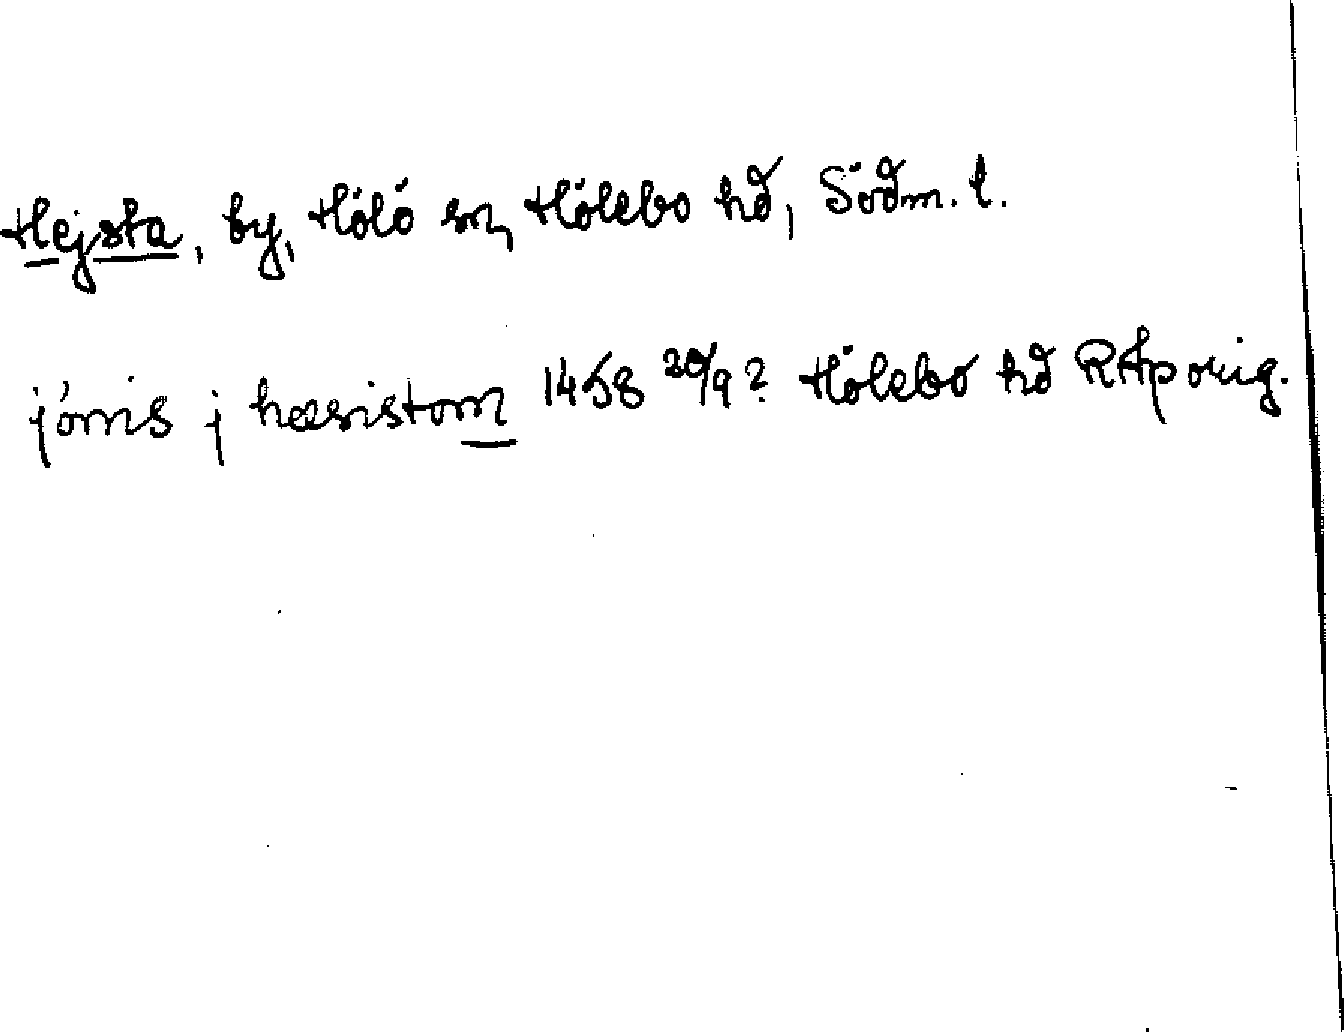 Hejsta, by, Hölö sn, Hölebo hd, Södm. l.
jönis j hæsistom 1458 20/9? Hölebo hd RAp orig.